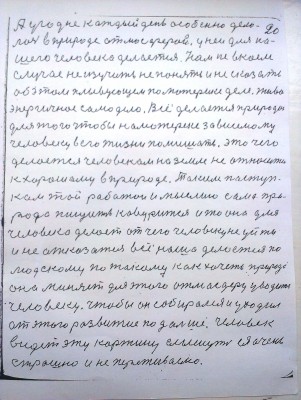 А угодне каждый день особенно дело- 20
лах в природе атмосферов. у неи для на-
шего человека делается. Нам не в коем
случае не изучить не понять и не сказать
об этом пливущем по материи деле. Жива
энергичное само дело. Всё делается природы
для того чтобы на материи зависемому
человеку в его жизни помешать. Это чего
делается человекам на земле не относить
к хорошаму в природе. Таким поступ-
кам той работой и мыслию сама при-
рода пишить ковурится и то она для
человека делает от чего человеку не уйти
и не отказатся всё наша делается по
людскому по такому как хочеть природе
она миняет для этого атмосферу уводить
человеку. Чтобы он собирался и уходил
от этого развитие подальше. Человек
видеть эту картину слышить её очень
страшно и не переживаемо.